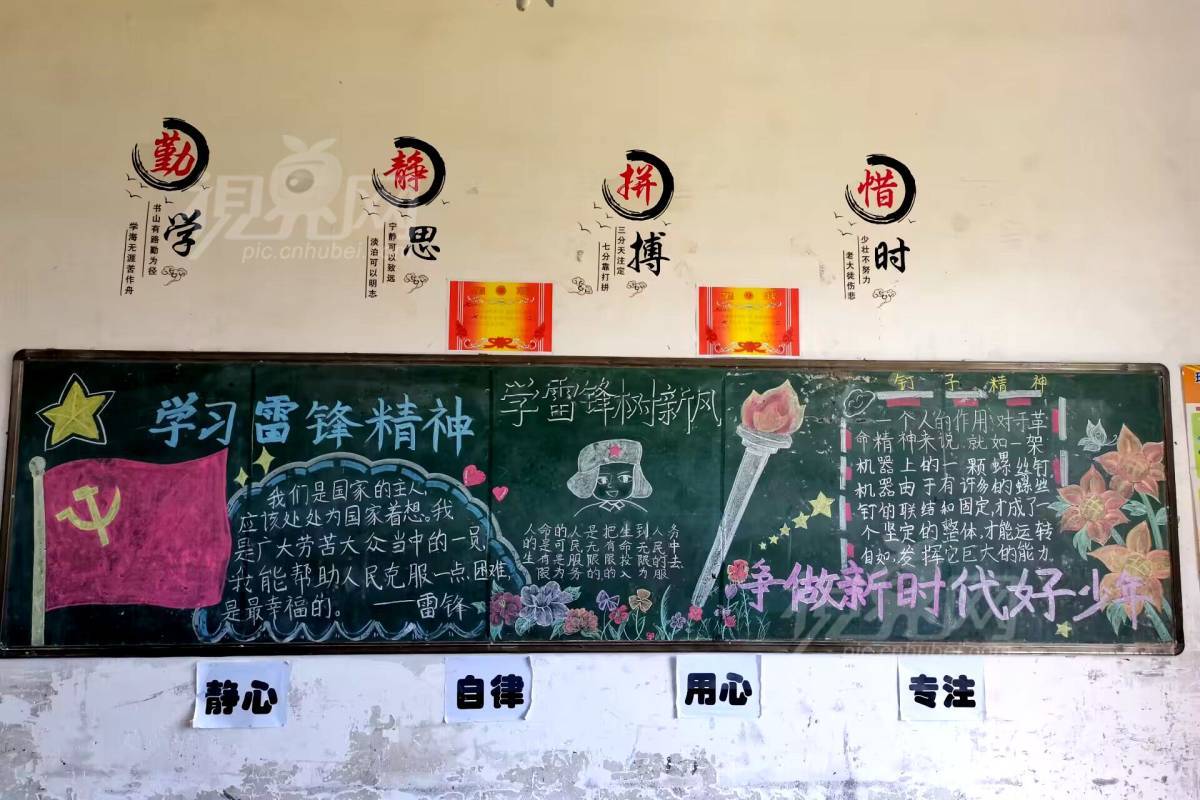 勤学
书山有路勤为径
学海无涯苦作舟
静思
宁静可以致远
淡泊可以明志
拼搏
三分天注定
七分靠打拼
惜时
少壮不努力
老大徒伤悲
学习雷锋精神
我们是国家的主人,
应该处处为国家着想。我
是广大劳苦大众当中的一员
我能帮助人民克服一点困难,
是最幸福的。——雷锋
学雷锋树新风
人的生
命是有限
的可是为
人民服务
是无限的
把有限的
生命投入
到无限为
人民的服
务中去
钉子精神
一个人的作用对于革
命精神来说.就如一架
机器上的一颗螺丝钉
机器由于有许多的螺丝
钉的联结和固定,才成了一
个坚定的整体,才能运转
自如,发挥它巨大的能力.
争做新时代好少年
静心
自律
用心
专注
pic.cnhubei.com
pic.cnhubei.com